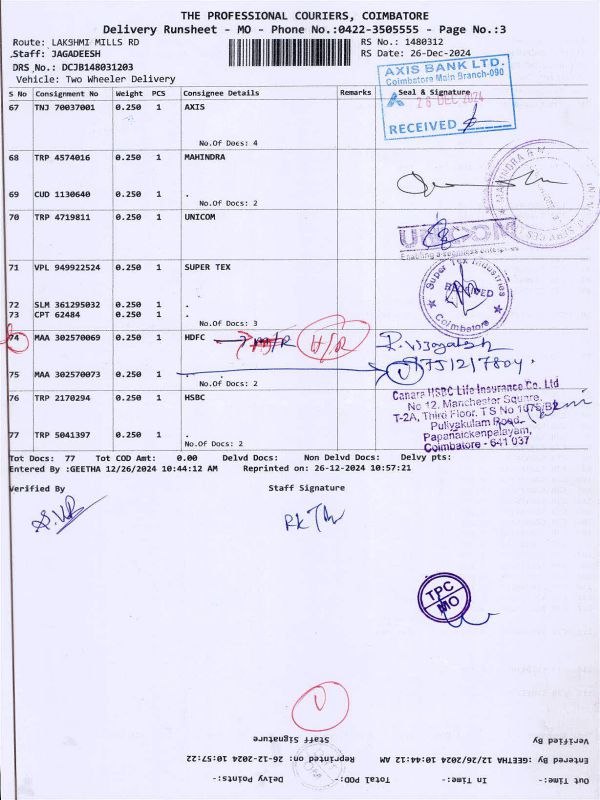 THE PROFESSIONAL COURIERS, COIMBATORE
Delivery Runsheet - MO - Phone No.:0422-3505555 - Page No.:3
Route: LAKSHMI MILLS RD RS No.: 1480312
Staff: JAGADEESH RS Date: 26-Dec-2024
DRS No.: DCJB148031203
Vehicle: Two Wheeler Delivery
AXIS BANK LTD.
Coimbatore Main Branch-090
26 DEC 2024
RECEIVED
S No Consignment No Weight PCS Consignee Details Remarks Seal & Signature
67 TNJ 70037001 0.250 1 AXIS
No.Of Docs: 4
68 TRP 4574016 0.250 1 MAHINDRA
69 CUD 1130640 0.250 1 .
No.Of Docs: 2
70 TRP 4719811 0.250 1 UNICOM
UNICOM
Enabling a seamless enterprise
71 VPL 949922524 0.250 1 SUPER TEX
Super Tex Industries
RECEIVED
Coimbatore
72 SLM 361295032 0.250 1 .
73 CPT 62484 0.250 1 .
No.Of Docs: 3
74 MAA 302570069 0.250 1 HDFC
75 MAA 302570073 0.250 1 .
No.Of Docs: 2
76 TRP 2170294 0.250 1 HSBC
Canara HSBC Life Insurance Co. Ltd
No 12, Manchester Square,
T-2A, Third Floor, T S No 1075/B2
Puliyakulam Road,
Papanaickenpalayam,
Coimbatore - 641 037
77 TRP 5041397 0.250 1 .
No.Of Docs: 2
Tot Docs: 77 Tot COD Amt: 0.00 Delvd Docs: Non Delvd Docs: Delvy pts:
Entered By :GEETHA 12/26/2024 10:44:12 AM Reprinted on: 26-12-2024 10:57:21
Verified By Staff Signature
TPC
MO
Staff Signature Verified By
Entered By :GEETHA: 12/26/2024 10:44:12 AM Reprinted on: 26-12-2024 10:57:22
Out Time:- In Time:- Total POD:- Delvy Points:-